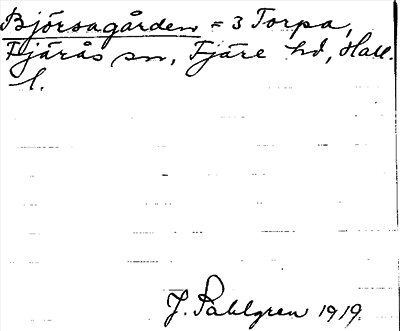 Björsagården = 3 Torpa,
Fjärås sn, Fjäre hd, Hall.
l.
J. Sahlgren 1919